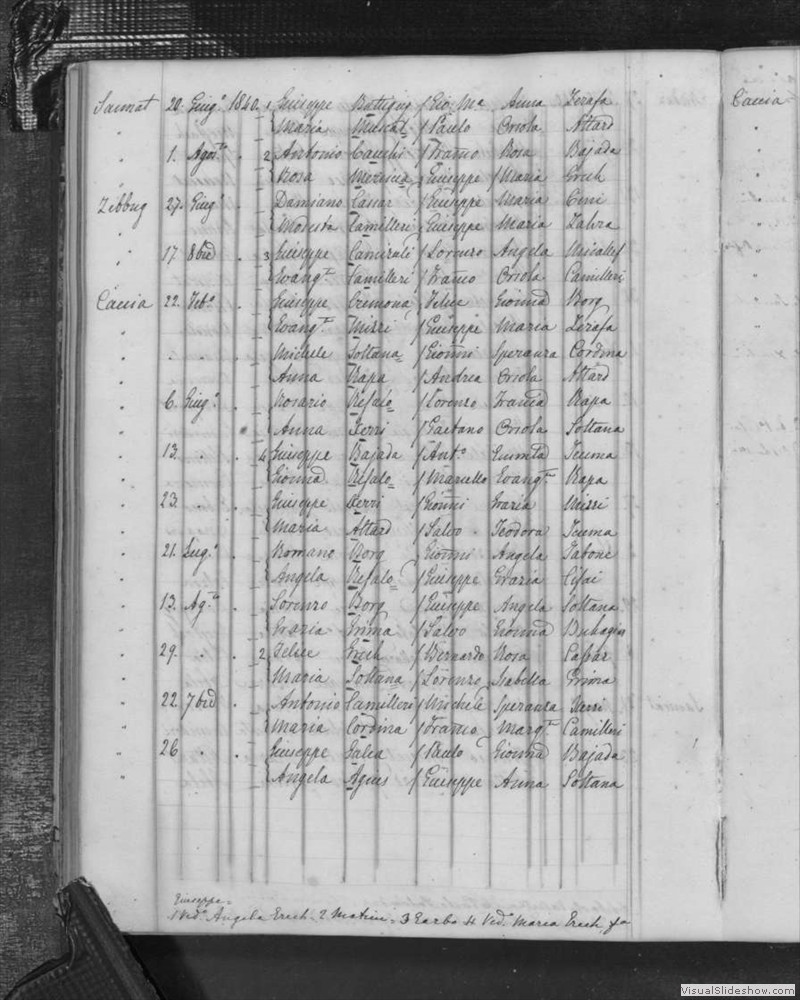 Sannat 20. Giug.º 1840. 1 Giuseppe Buttigieg f Gio. Mª Anna Zerafa
" Maria Muscat f Paulo Oriola Attard
" 1. Agosto . 2 Antonio f Franco Rosa Bajada
" Rosa f Giuseppe Maria Grech
Zebbug 27. Giugº . Damiano Cassar f Giuseppe Maria Cini
" Modesta Camilleri f Giuseppe Maria
" 17 8bre . 3 Giuseppe f Lorenzo Angela Micallef
" Evang.ta Camilleri f Franco Oriola Camilleri
Caccia 22. Feb.º . Giuseppe Cremona f Felice Gionna Borg
" Evang.ta Mizzi f Giuseppe Maria Zerafa
" . . . Michele Soltana f Gionni Speranza Cordina
" Anna Rapa f Andrea Oriola Attard
" 6. Giug.º . Rosario Refalo f Lorenzo Franca Rapa
" Anna Xerri f Gaetano Oriola Soltana
" 13. . . 4 Giuseppe Bajada f Ant.º Xuma
" Gionna Refalo f Marcello Evang.ta Rapa
" 23. . . Giuseppe Xerri f Gionni Grazia Mizzi
" Maria Attard f Salvo Teodora Xuma
" 21. Lug.º . Romano Borg f Gionni Angela Tabone
" Angela Refalo f Giuseppe Grazia
" 13. Ag.to . Lorenzo Borg f Giuseppe Angela Soltana
" Grazia Grima f Salvo Gionna Buhagiar
" 29. . . 2 Felice Grech f Bernardo Rosa Cassar
" Maria Soltana f Lorenzo Isabella Grima
" 22. 7bre . Antonio Camilleri f Michele Speranza Xerri
" Maria Cordina f Franco Marg.ta Camilleri
" 26 . . Giuseppe Galea f Paulo Gionna Bajada
" Angela Agius f Giuseppe Anna Soltana
Giuseppe
1 Ved.º Angela Grech. 2. 3 4 Ved.º Maria Grech
Caccia
VisualSlideshow.com